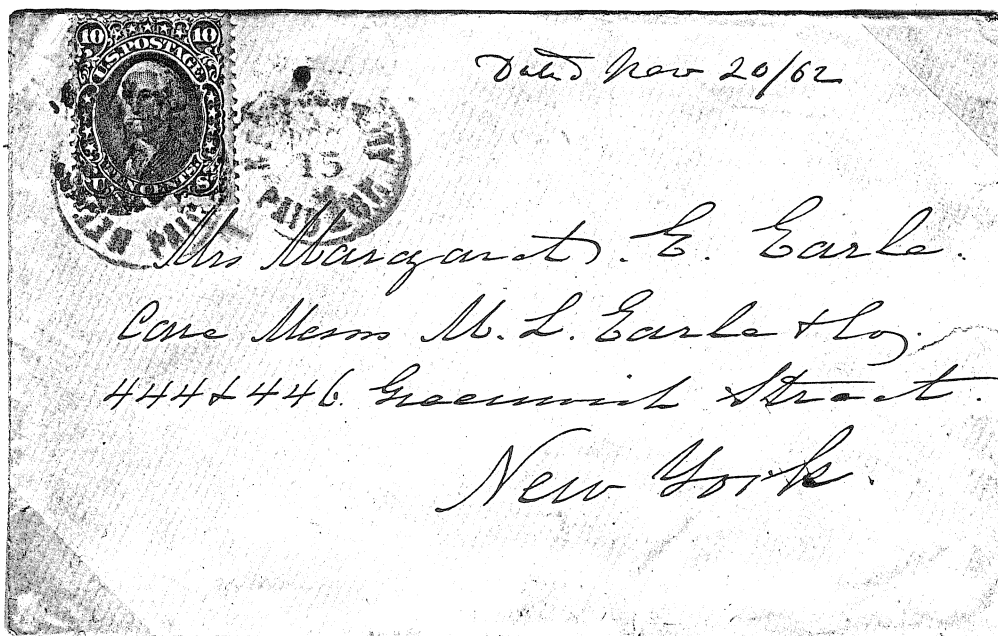 10 10
U.S. POSTAGE
TEN CENTS
U S
Dated Nov 20/62
15
PAID
Mrs Margaret E. Earle.
Care Messrs M. L. Earle & Co.
444 & 446. Greenwich Street.
New York.